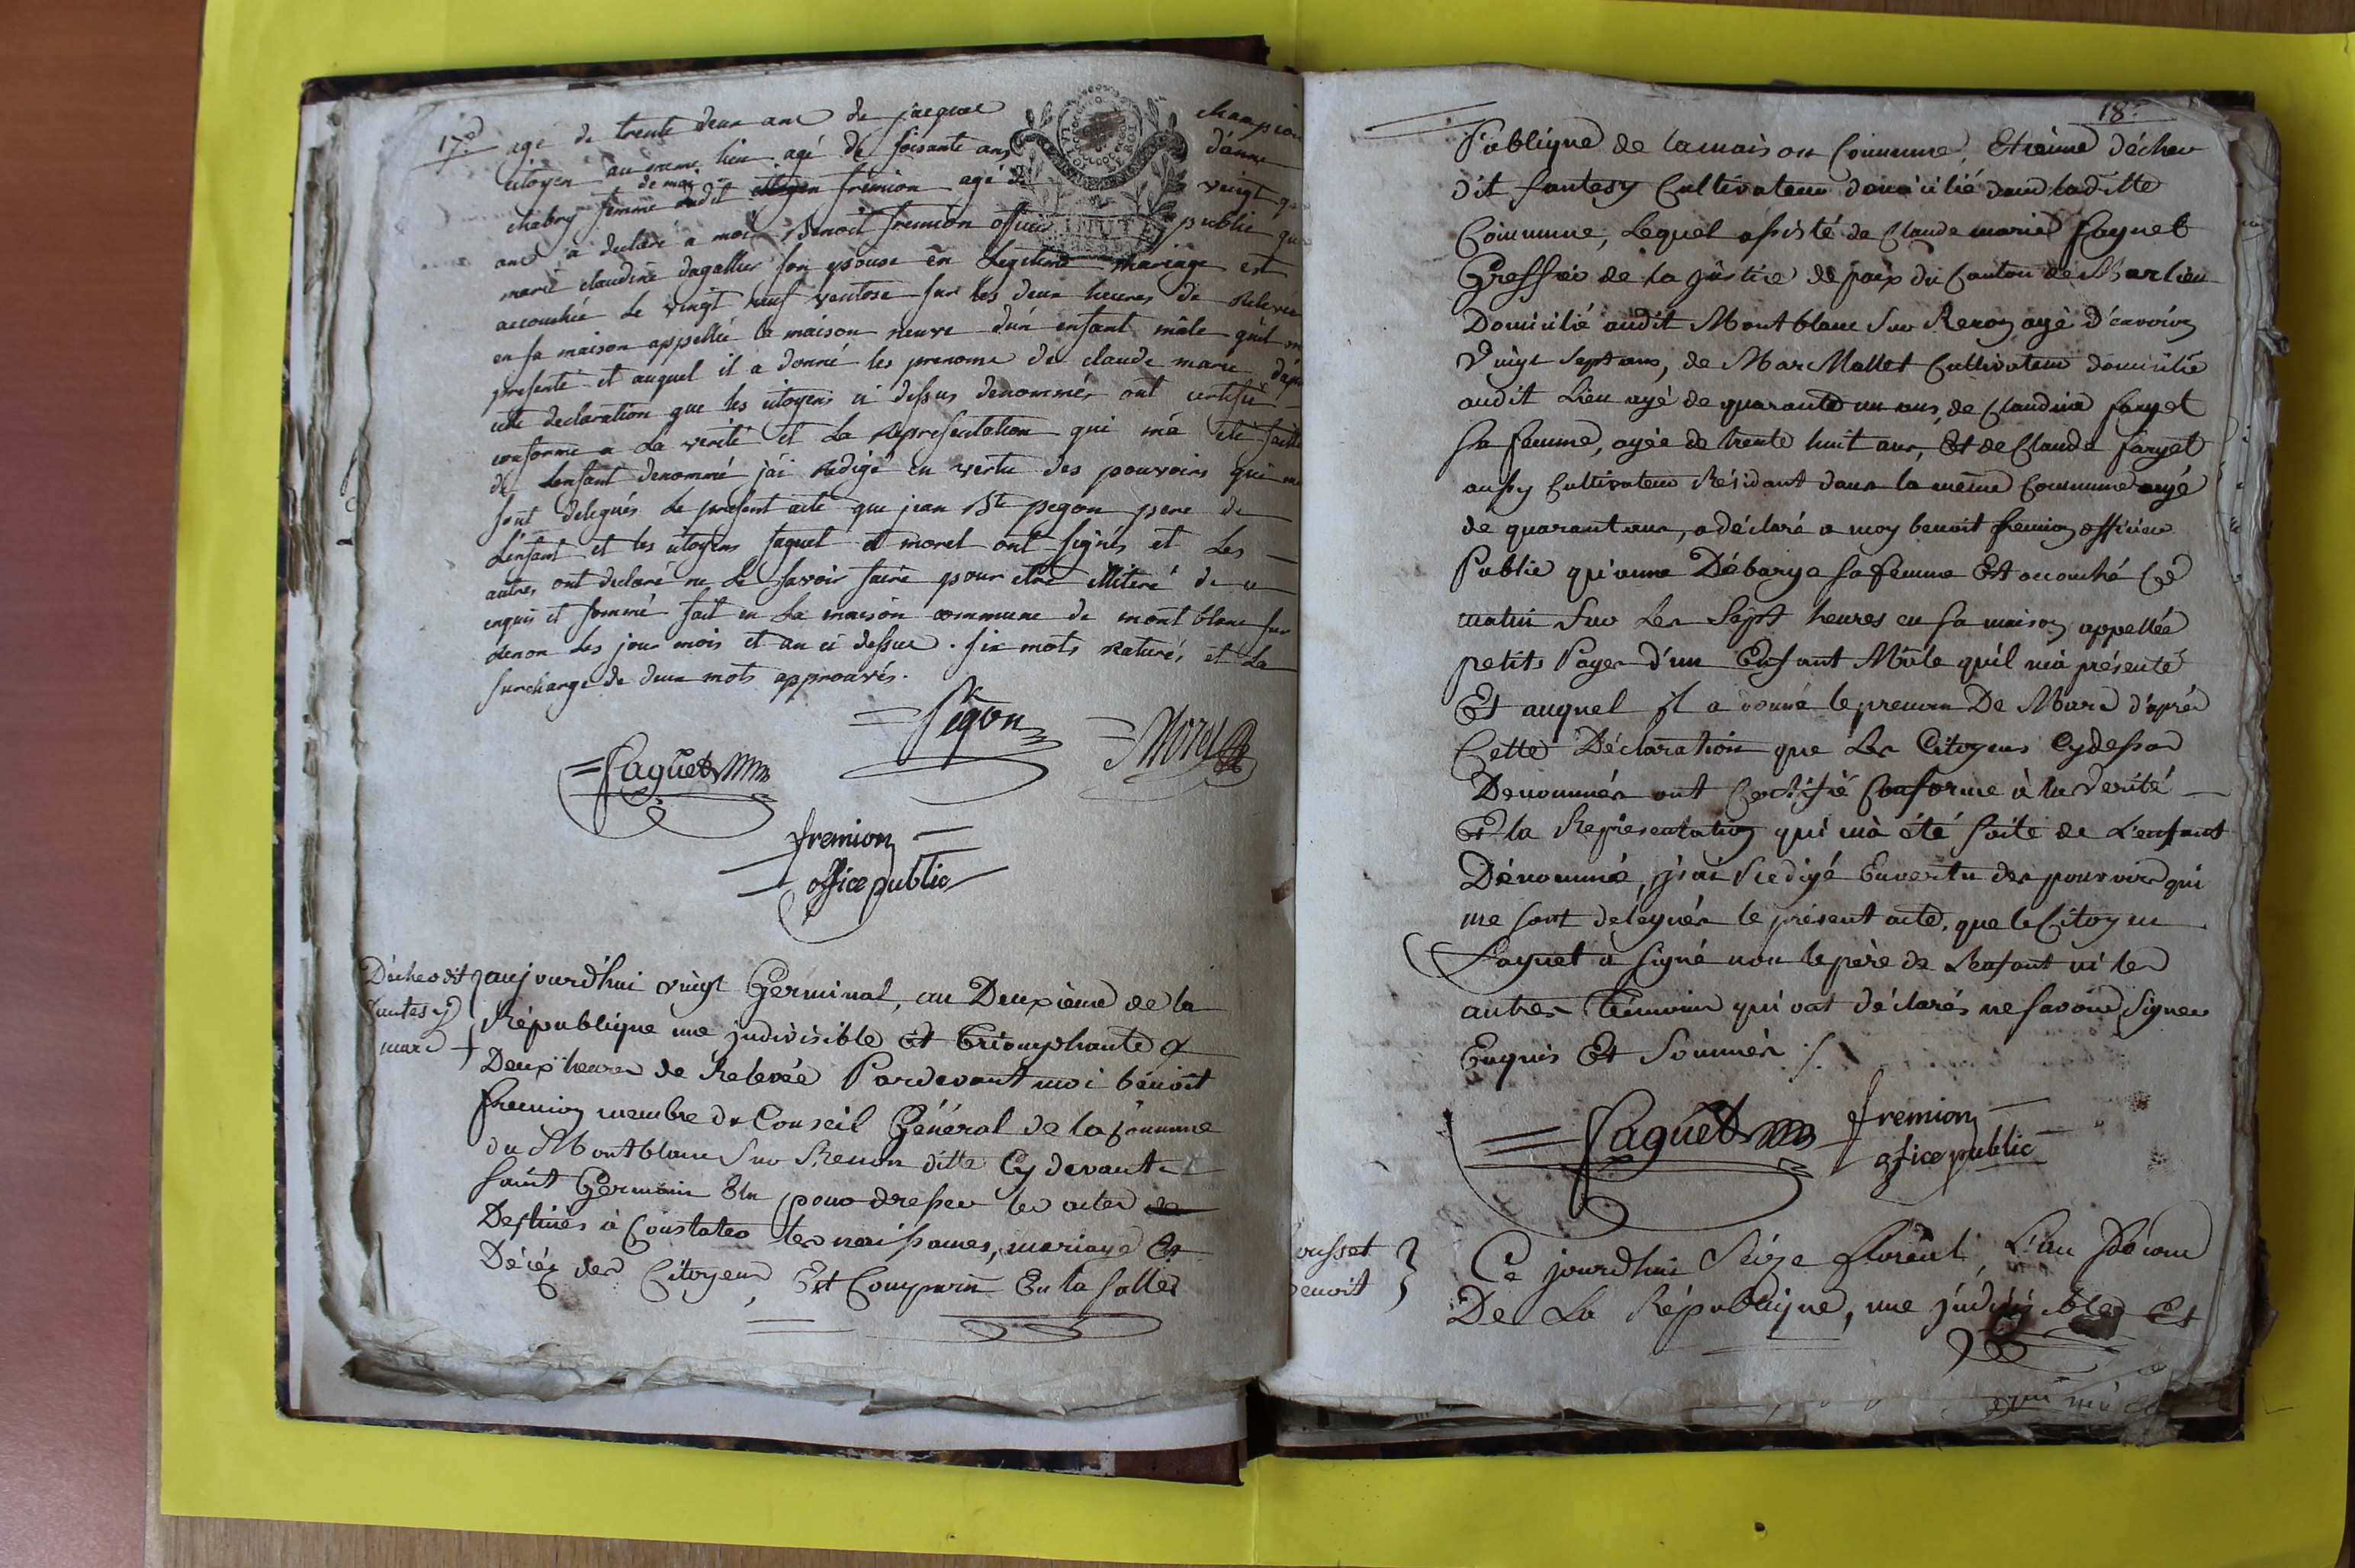 17e
agé de trente deux ans de jacque champion
citoyen au meme lieu agé de soisante ans d'anne
chabry femme de moi dudit citoyen fremion agé de vingt
ans a declaré a moi Benoit fremion officier public que
marie claudine dagallier son epouse en Legitime mariage est
accouchée Le vingt neuf ventose sur les deux heures de Relevée
en sa maison appellée la maison neuve d'un enfant mâle qu'il m
presenté et auquel il a donné les prenoms de claude marie d'apr
cette declaration que les citoyens ci dessus denommés ont certifié
conforme a La verité et La Representation qui m'a été faitte
de Lenfant denommé j'ai redigé en vertu des pouvoirs qui me
sont delegués Le present acte que jean Bte pegon pere de
L'enfant et les citoyens faguet et morel ont signés et Les
autres ont declaré ne Le savoir faire pour etre illiteré de ce
enquis et sommé fait en La maison commune de mont blanc sur
renon Les jour mois et an ci dessus. six mots raturés et La
surcharge de deux mots approuvés.
Pegon
Morel
Faguet
fremion
office public
Déche dit
fantesy
marc
aujourd'hui vingt Germinal, an Deuxieme de la
République une jndivisible Et Triomphante a
Deux heures de Rélevée Pardevant moi bénoit
fremion membre du Conseil Général de la Commune
du Montblanc Sur Renon ditte Cy devant
Saint Germain Elu pour dresser les actes de
Destinés à Constater les naissances, mariages Et
Décés des Citoyens, Est Comparu En la salle
18e
Publique de la maison Commune, Etienne déche
dit fantesy Cultivateur domicilié dans laditte
Commune, Lequel assisté de Claude marie Faguet
Greffier de la justice de paix du Canton de Marlieu
Domicilié audit Montblanc Sur Renon agé d'environ
Vingt Sept ans, de Marc Mallet Cultivateur domicilié
audit Lieu agé de quarante un ans, de Claudine farget
sa femme, agée de trente huit ans, Et de Claude farget
aussy Cultivateur Résidant dans la même Commune agé
de quarant ans, a déclaré a moy benoit fremion officier
Public qu'anne Débarge sa femme Est accouché Ce
matin Sur Les Sept heures en sa maison appellée
petits Pages d'un Enfant Mâle qu'il m'a présenté
Et auquel jl a donné le prenom De Marc d'aprés
Cette Déclaration que Les Citoyens Cydessus
Denommés ont Certifié Conforme à la verité
Et la Représentation qui m'a été faite de L'enfant
Dénommé, j'ai Redigé En vertu des pouvoirs qui
me sont delegués le présent acte, que le Citoyen
Faguet a signé non le père de L'enfant ni les
autres Témoins qui ont déclarés ne savoir Signer
Enquis Et Sommés ./.
Faguet fremion
ofice public
ousset
enoit
Ce jourd'hui Seize floréal, L'an Second
De La République, une jndivisible Et